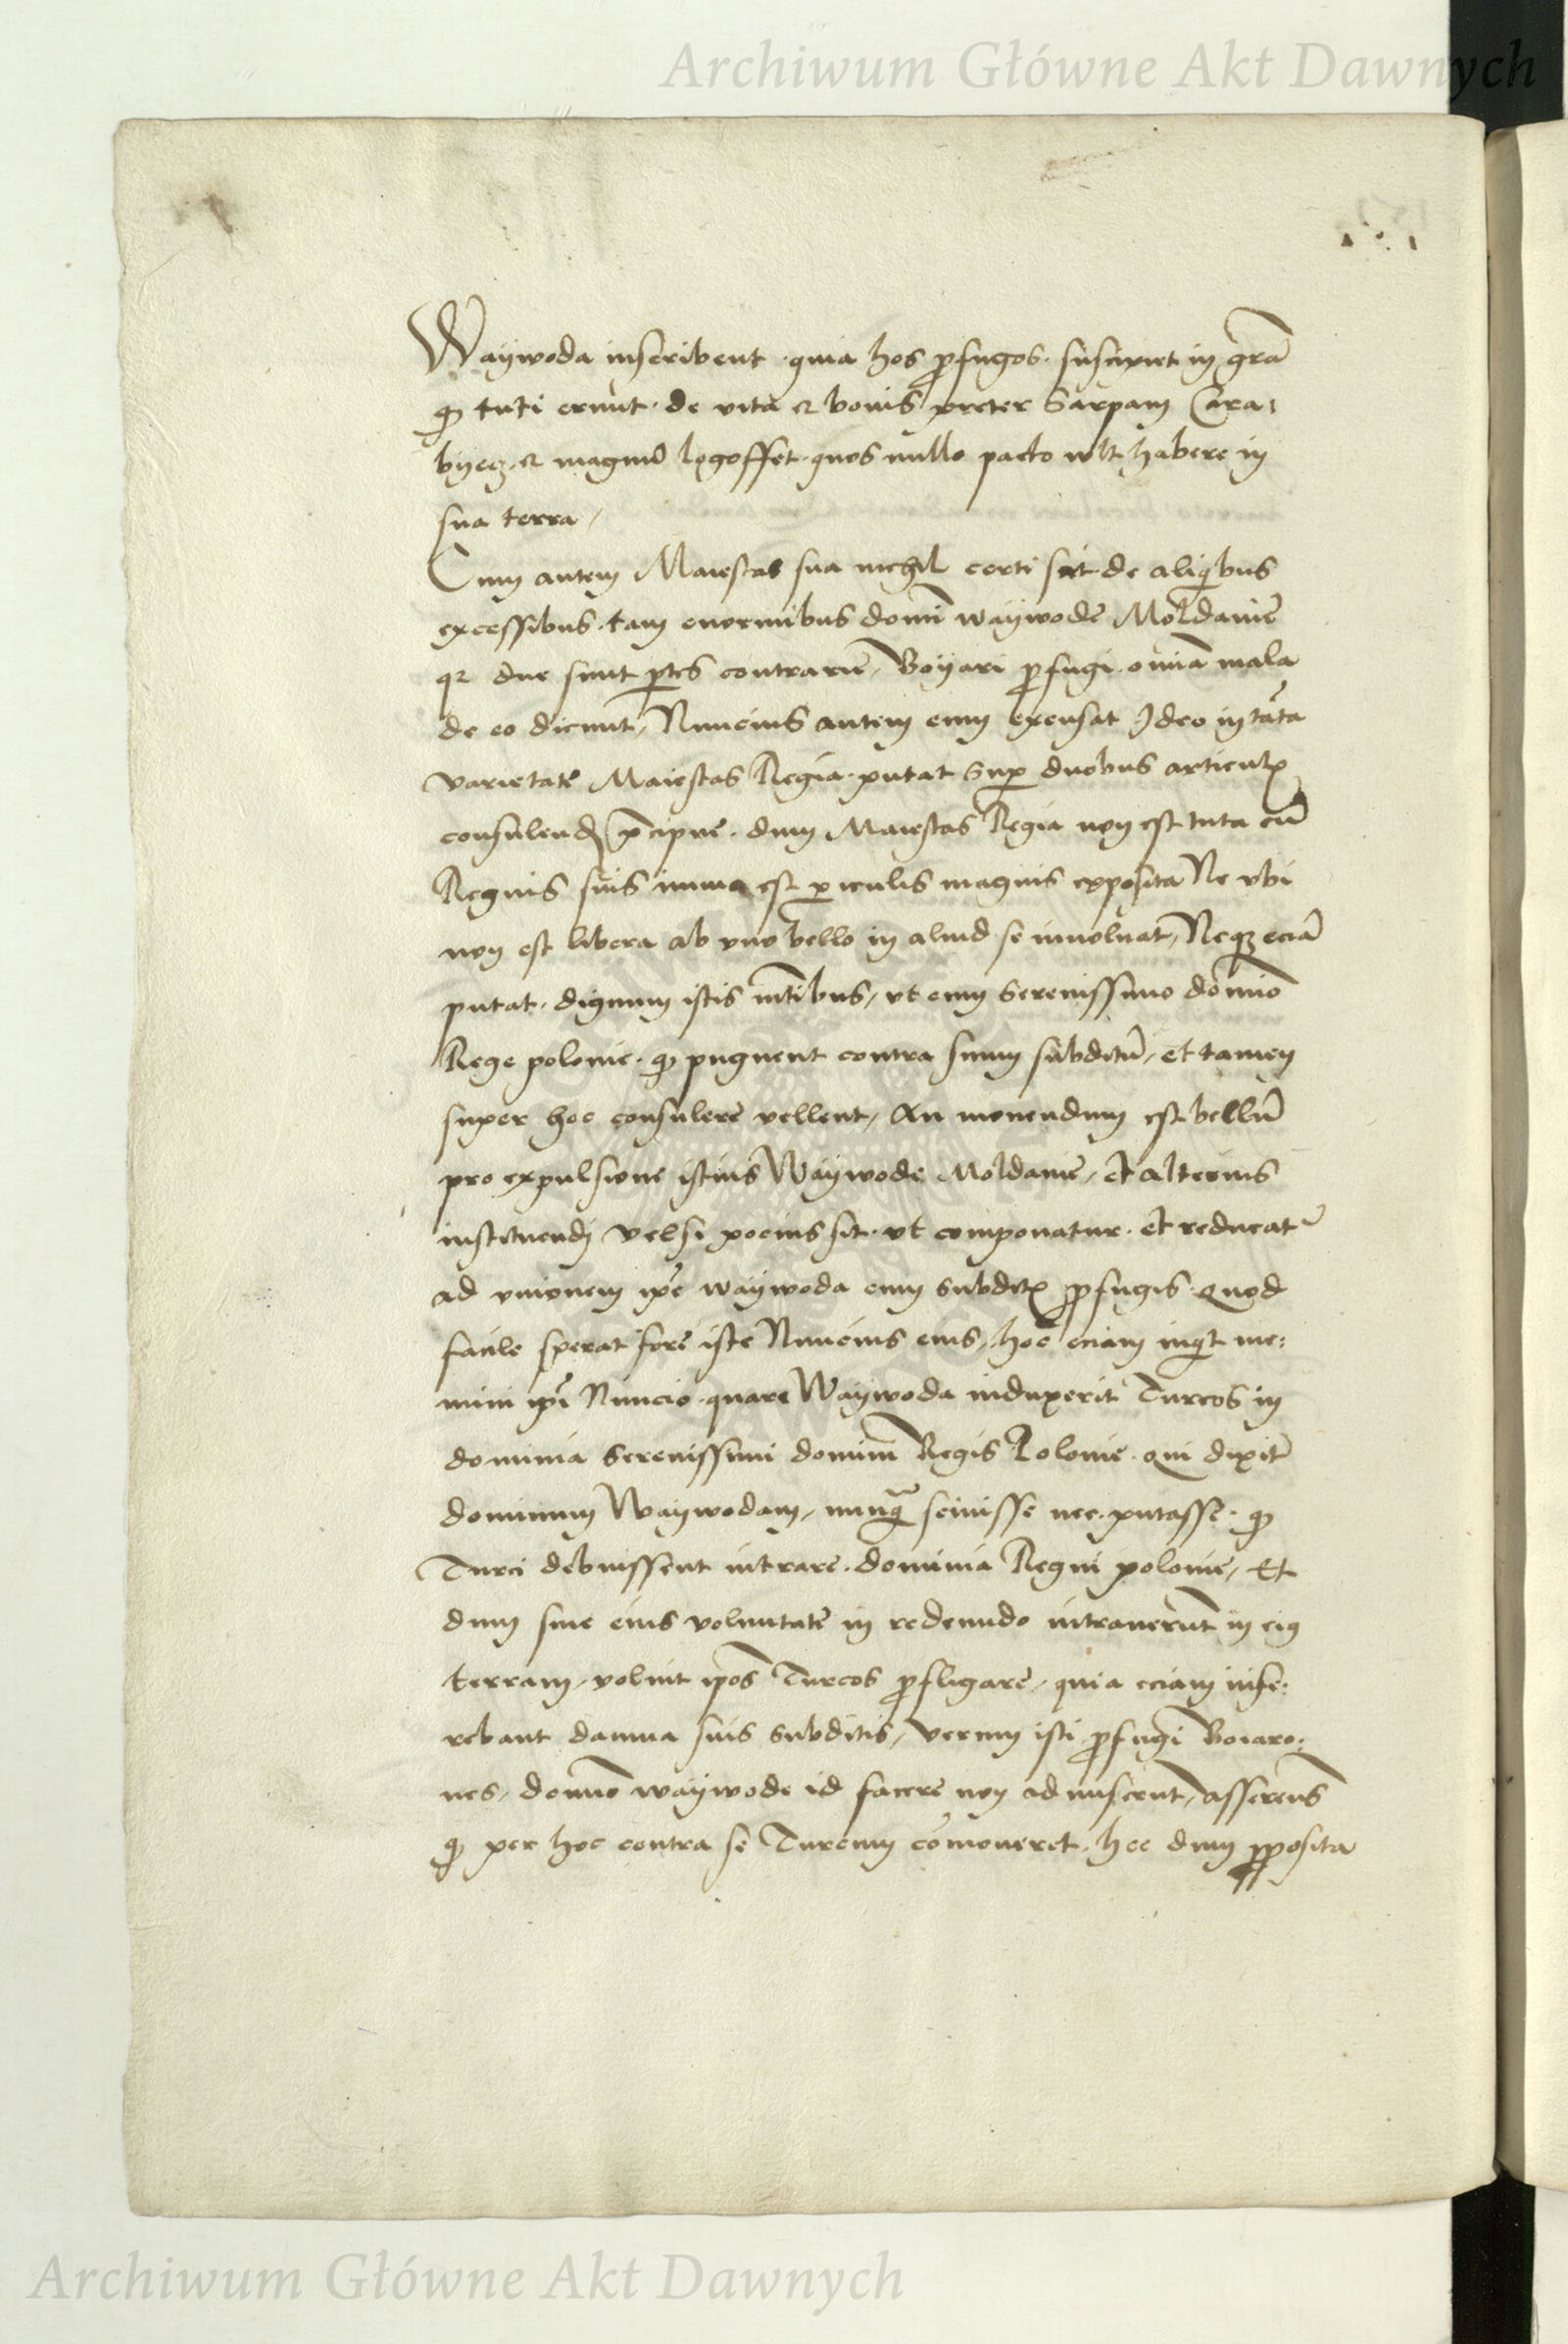 Archiwum Główne Akt Dawnych
Waÿwoda inscribent · quia hos ꝓfugos · suscipiet in grã
ꝙ tuti erunt · de vita et bonis preter Sarpam Cara-
byecz · et magnũ logoffet · quos nullo pacto vult habere in
sua terra /
Cum autem Maiestas sua nichil certi scit de aliqibus
excessibus · tam enormibus domĩ waÿwode Moldauie
qr due sunt ꝑtes contrarie / Boÿari ꝓfugi · omĩa mala
de eo dicunt / Nuncius autem eum excusat Ideo in tãta
varietate Maiestas Regia · putat Suꝑ duobus articulꝭ
consulend p̃cipue · dum Maiestas Regia non est tuta cũ
Regnis suis immo est ꝑiculis magnis exposita Ne vbi
non est libera ab vno bello in aliud se inuoluat / Neqꝫ eciã
putat · dignum istis · vt cum Serenissimo domino
Rege polonie · ꝙ pugnent contra suum subditũ / et tamen
super hoc consulere vellent / An mouendum est bellũ
pro expulsione istius Waÿwode Moldauie / et alterius
instituendi velsi pocius sit · vt componatur · et reducat᷑
ad vnionem ip̃e waÿwoda cum subditꝭ ꝓfugis · Quod
facile sperat fore iste Nuncius eius / hoc eciam
ip̃i Nuncio · quare Waÿwoda induxerit Turcos in
dominia Serenissimi domini Regis Polonie · Qui dixit
dominum Waÿwodam / nunqã sciuisse nec · putasse · ꝙ
Turci debuissent intrare · dominia Regni polonie / Et
dum sine eius voluntate in redeundo intrauerũt in eiꝰ
terram / voluit ip̃os Turcos ꝓfligare / quia eciam infe-
rebant damna suis subditis / verum isti ꝓfugi Boiaro-
nes / domĩo waÿwode id facere non admiserunt / asserens
ꝙ per hoc contra se Turcum cõmoueret · hec dum ꝓposita
Archiwum Główne Akt Dawnych